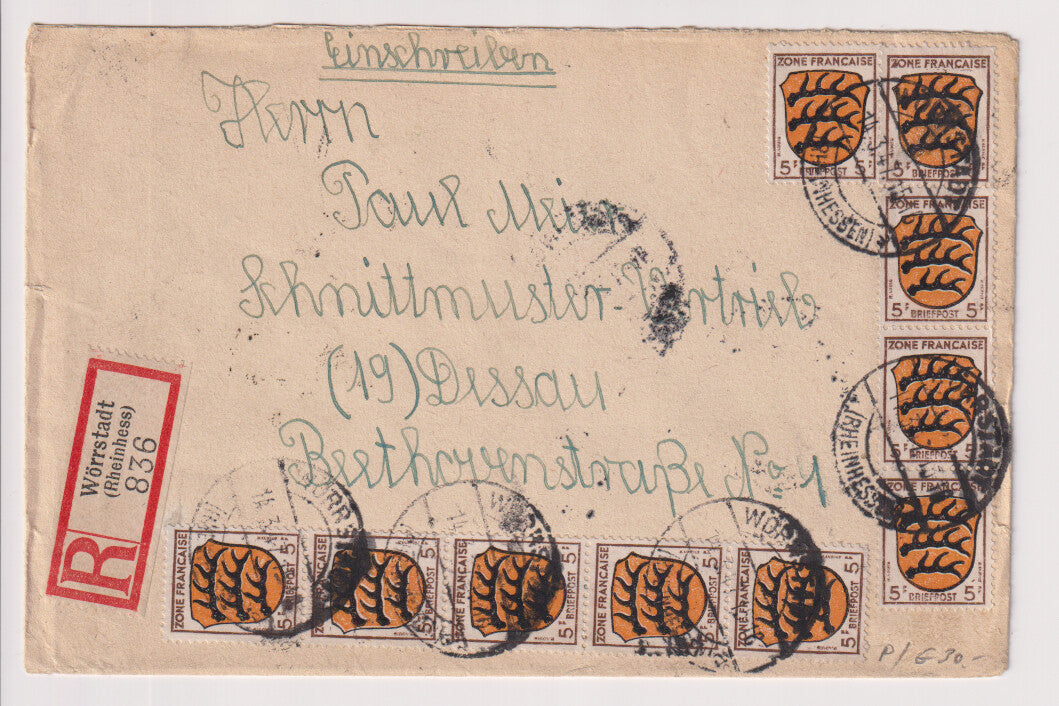 Einschreiben
Herrn
Paul Mein
Schnittmuster-Vertrieb
(19) Dessau
Beethovenstraße No 4
Wörrstadt
(Rheinhess)
836
R
ZONE FRANCAISE
5F BRIEFPOST 5F
ZONE FRANCAISE
5F BRIEFPOST 5F
ZONE FRANCAISE
5F BRIEFPOST 5F
ZONE FRANCAISE
5F BRIEFPOST 5F
5F BRIEFPOST 5F
ZONE FRANCAISE
5F BRIEFPOST 5F
ZONE FRANCAISE
5F BRIEFPOST 5F
ZONE FRANCAISE
5F BRIEFPOST 5F
ZONE FRANCAISE
5F BRIEFPOST 5F
ZONE FRANCAISE
5F BRIEFPOST 5F
WÖRRSTADT
(RHEINHESSEN)
P/ € 30.-